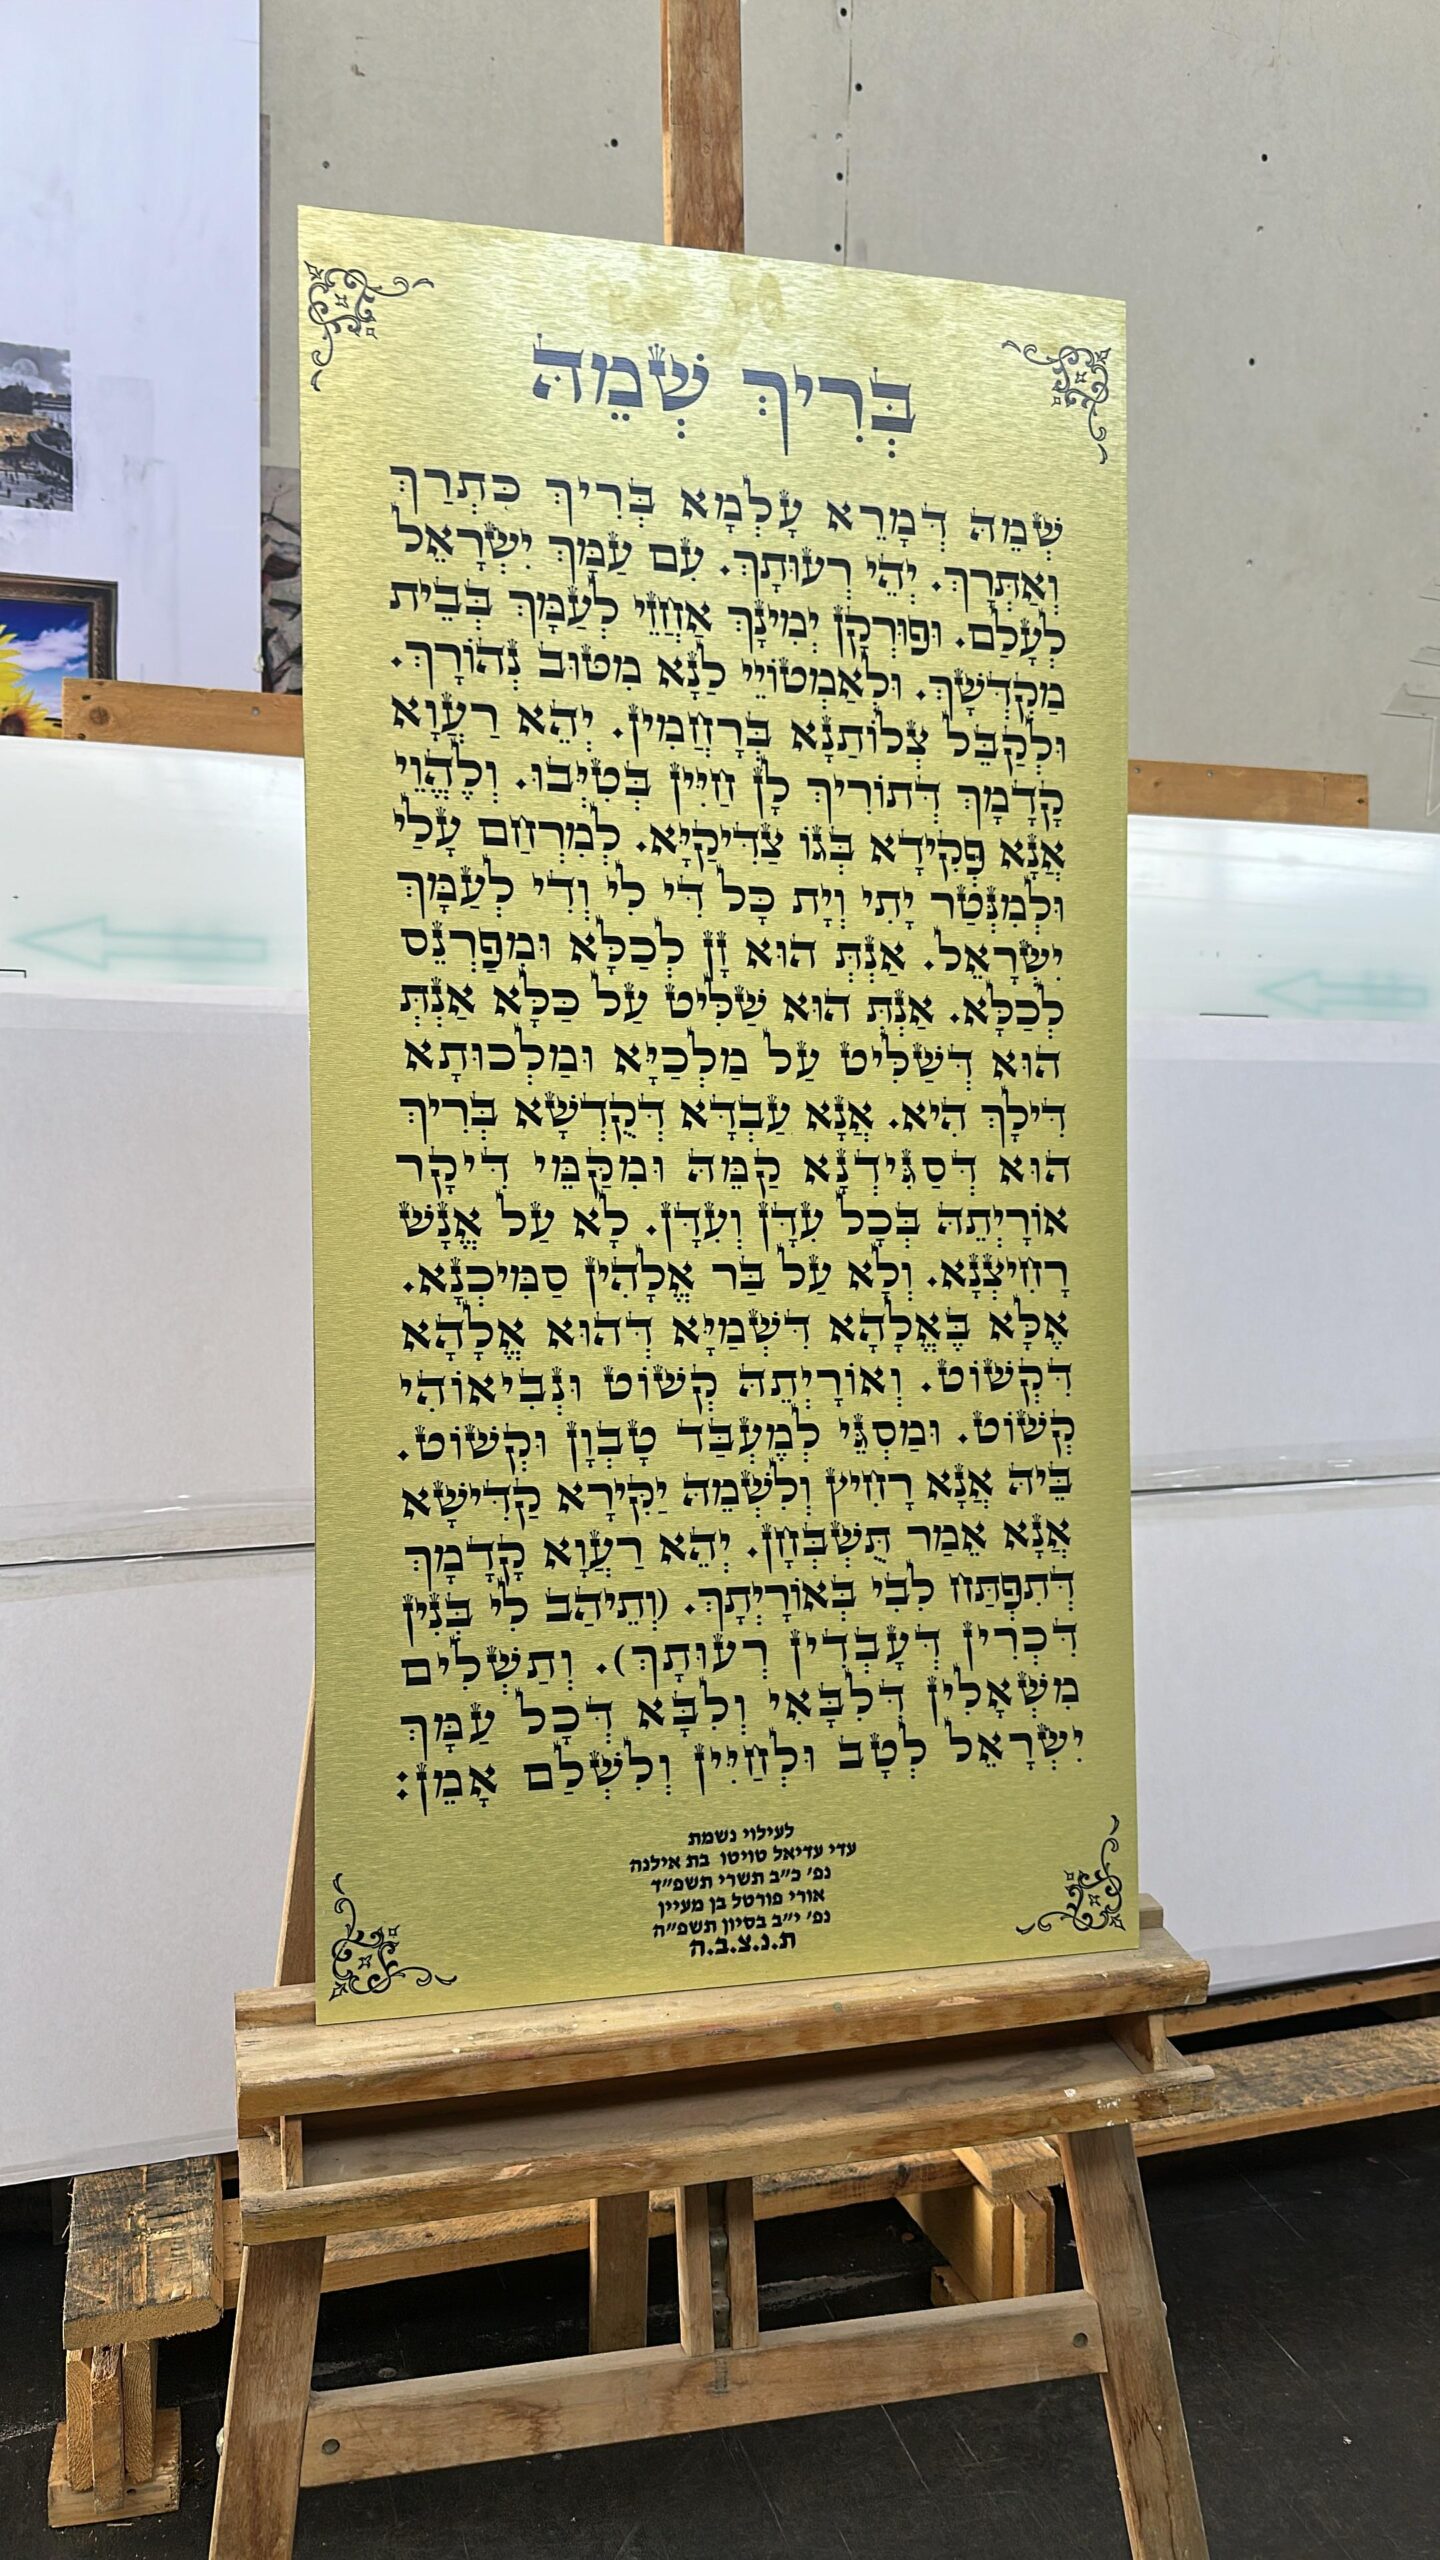 בְּרִיךְ שְׁמֵהּ
שְׁמֵהּ דְּמָרֵא עָלְמָא בְּרִיךְ כִּתְרָךְ
וְאַתְרָךְ. יְהֵי רְעוּתָךְ. עִם עַמָּךְ יִשְׂרָאֵל
לְעָלַם. וּפוּרְקַן יְמִינָךְ אַחֲזֵי לְעַמָּךְ בְּבֵית
מַקְדְּשָׁךְ. וּלְאַמְטוֹיֵי לַנָא מִטּוּב נְהוֹרָךְ.
וּלְקַבֵּל צְלוֹתַנָא בְּרַחֲמִין. יְהֵא רַעֲוָא
קָדָמָךְ דְּתוֹרִיךְ לָן חַיִּין בְּטִיבוּ. וְלֶהֱוֵי
אֲנָא פְּקִידָא בְּגוֹ צַדִּיקַיָּא. לְמִרְחַם עָלַי
וּלְמִנְטַר יָתִי וְיָת כָּל דִּי לִי וְדִי לְעַמָּךְ
יִשְׂרָאֵל. אַנְתְּ הוּא זָן לְכֹלָּא וּמְפַרְנֵס
לְכֹלָּא. אַנְתְּ הוּא שַׁלִּיט עַל כֹּלָּא אַנְתְּ
הוּא דְּשַׁלִּיט עַל מַלְכַיָּא וּמַלְכוּתָא
דִּילָךְ הִיא. אֲנָא עַבְדָּא דְּקֻדְשָׁא בְּרִיךְ
הוּא דְּסַגִּידְנָא קַמֵּהּ וּמִקַּמֵּי דִּיקָר
אוֹרָיְתֵהּ בְּכָל עִדָּן וְעִדָּן. לָא עַל אֱנָשׁ
רָחִיצְנָא. וְלָא עַל בַּר אֱלָהִין סָמִיכְנָא.
אֶלָּא בֶּאֱלָהָא דִּשְׁמַיָּא דְּהוּא אֱלָהָא
דִּקְשׁוֹט. וְאוֹרָיְתֵהּ קְשׁוֹט וּנְבִיאוֹהִי
קְשׁוֹט. וּמַסְגֵּי לְמֶעְבַּד טָבְוָן וּקְשׁוֹט.
בֵּיהּ אֲנָא רָחִיץ וְלִשְׁמֵהּ יַקִּירָא קַדִּישָׁא
אֲנָא אֵמַר תֻּשְׁבְּחָן. יְהֵא רַעֲוָא קָדָמָךְ
דְּתִפְתַּח לִבִּי בְּאוֹרָיְתָךְ. (וְתֵיהַב לִי בְּנִין
דִּכְרִין דְּעָבְדִין רְעוּתָךְ). וְתַשְׁלִים
מִשְׁאָלִין דְּלִבָּאִי וְלִבָּא דְּכָל עַמָּךְ
יִשְׂרָאֵל לְטָב וּלְחַיִּין וְלִשְׁלָם אָמֵן:
לעילוי נשמת
עדי עדיאל טויטו בת אילנה
נפ' כ"ב תשרי תשפ"ד
אורי פורטל בן מעיין
נפ' י"ב בסיון תשפ"ה
ת.נ.צ.ב.ה